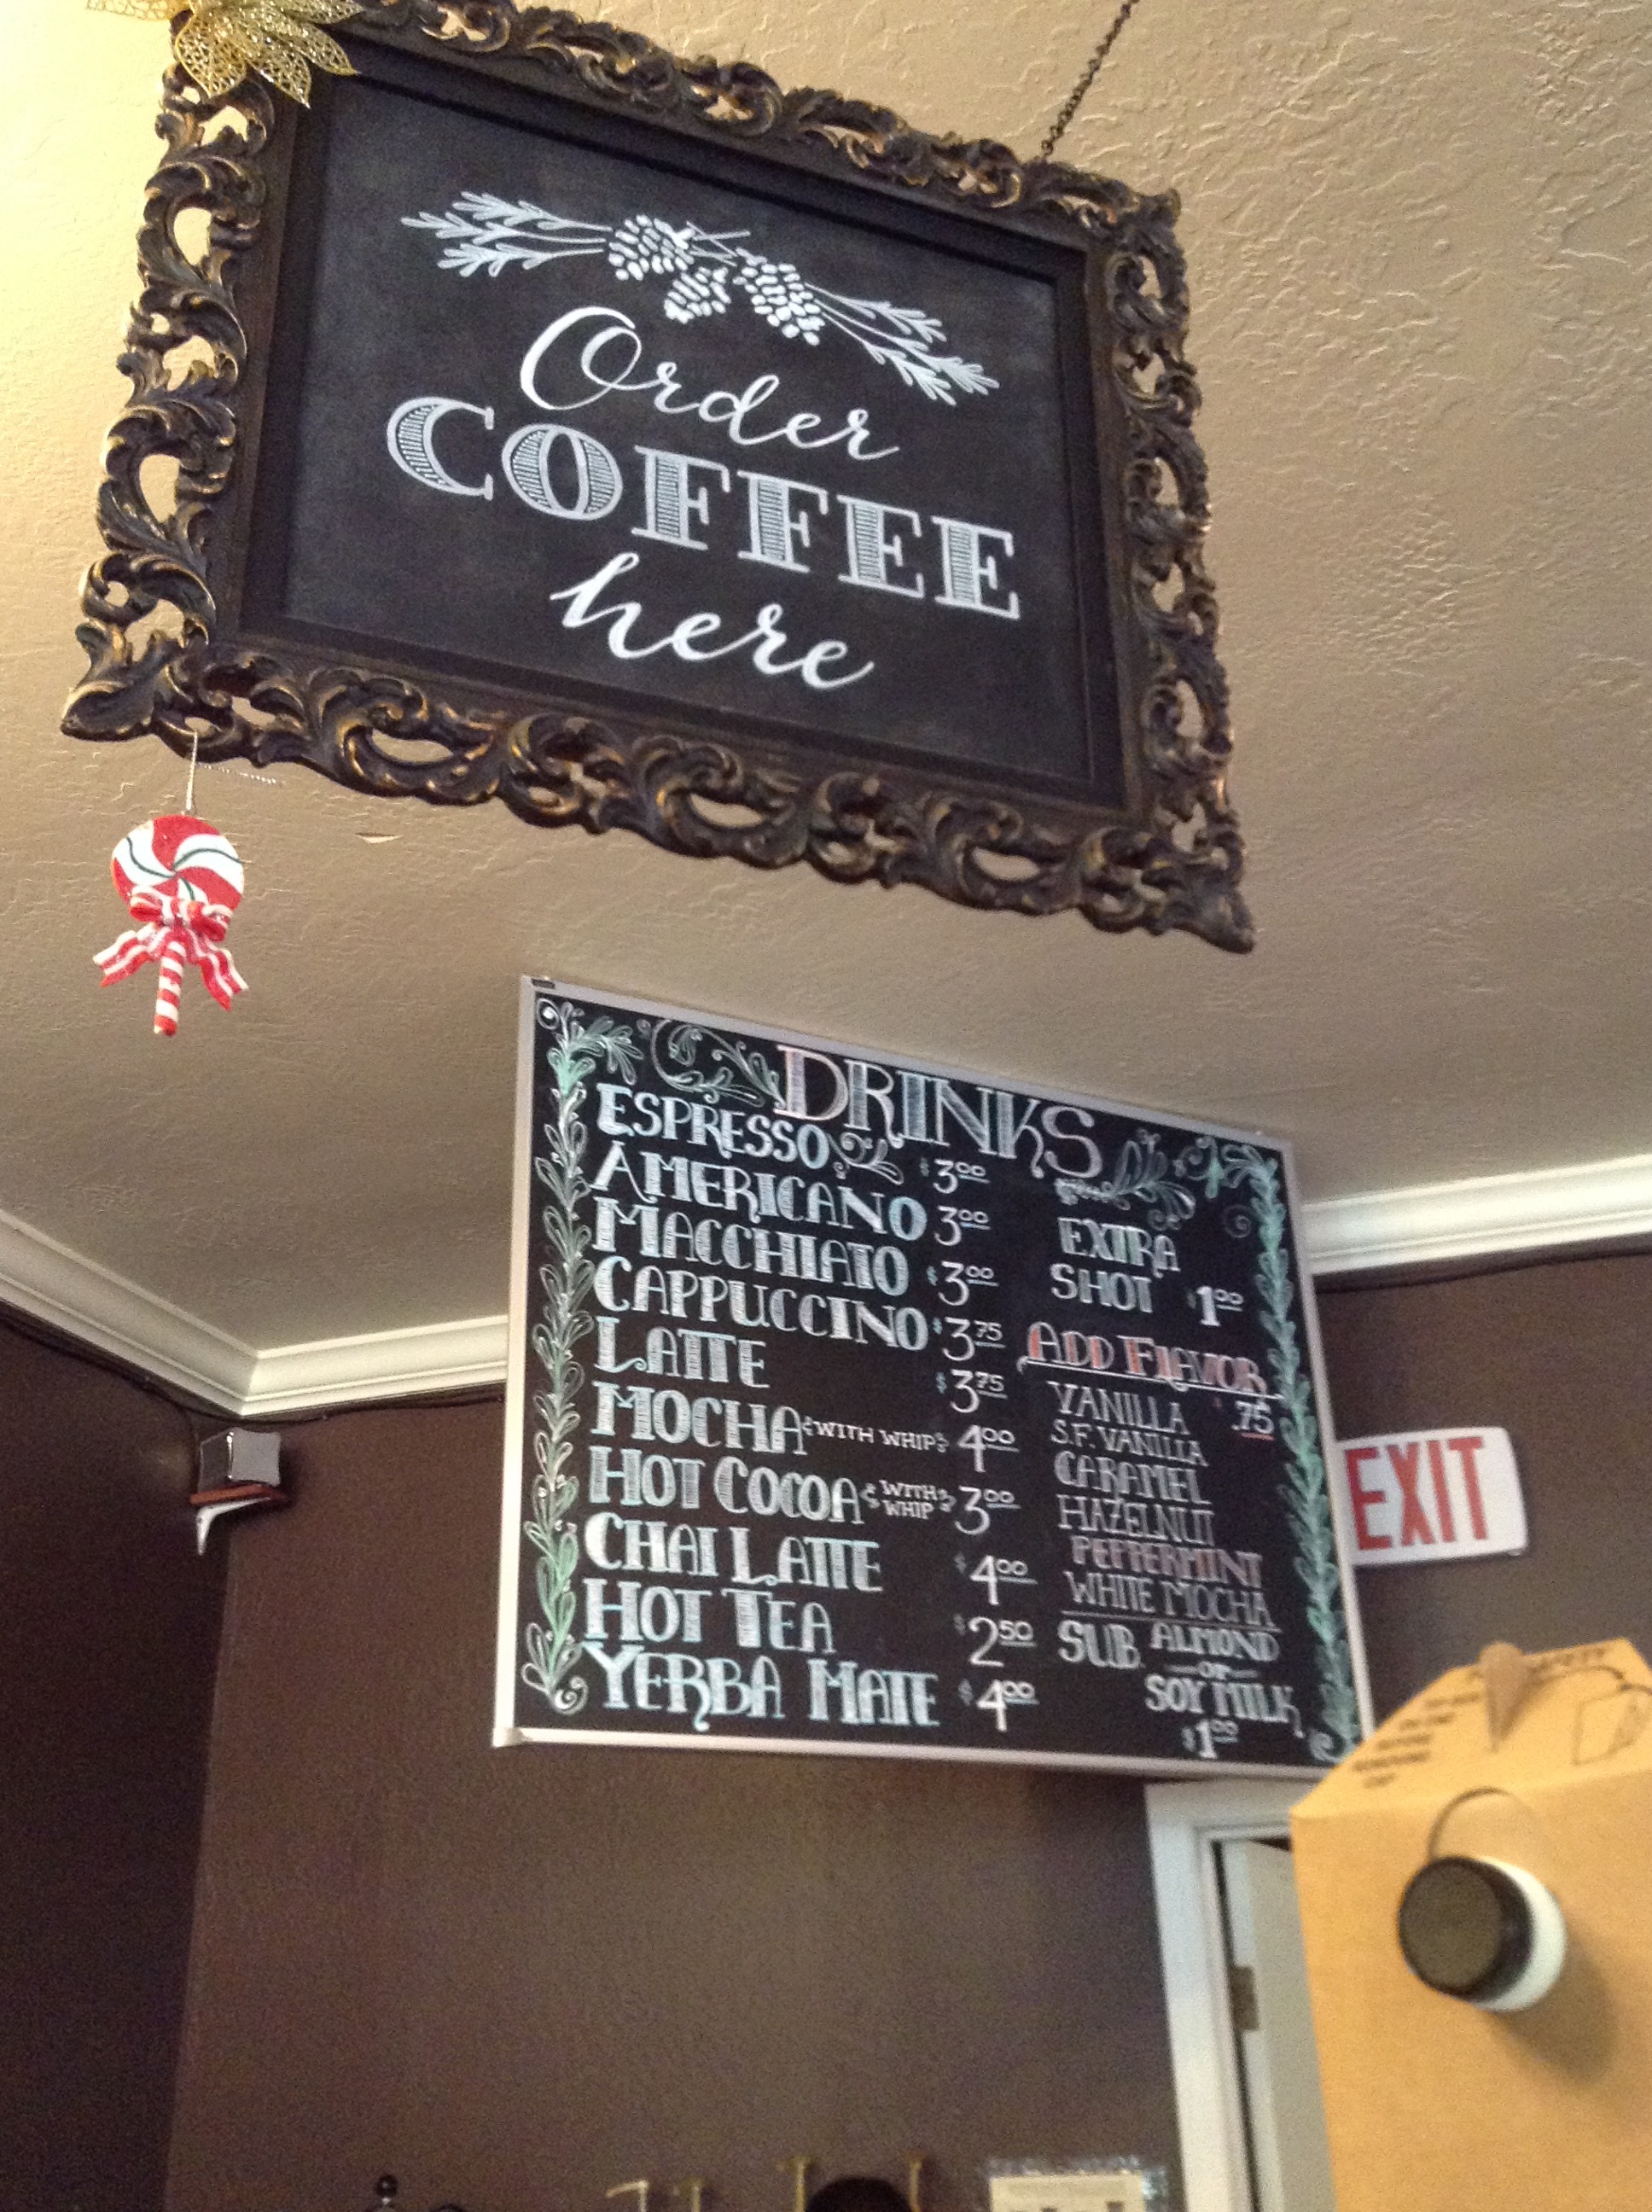 Order
COFFEE
here
DRINKS
ESPRESSO $3.00
AMERICANO 3.00
MACCHIATO $3.00
CAPPUCCINO $3.75
LATTE $3.75
MOCHA {WITH WHIP} 4.00
HOT COCOA {WITH WHIP} 3.00
CHAI LATTE $4.00
HOT TEA $2.50
YERBA MATE $4.00
EXTRA
SHOT $1.00
ADD FLAVOR
.75
VANILLA
S.F. VANILLA
CARAMEL
HAZELNUT
PEPPERMINT
WHITE MOCHA
SUB ALMOND
-or-
SOY MILK
$1.00
EXIT